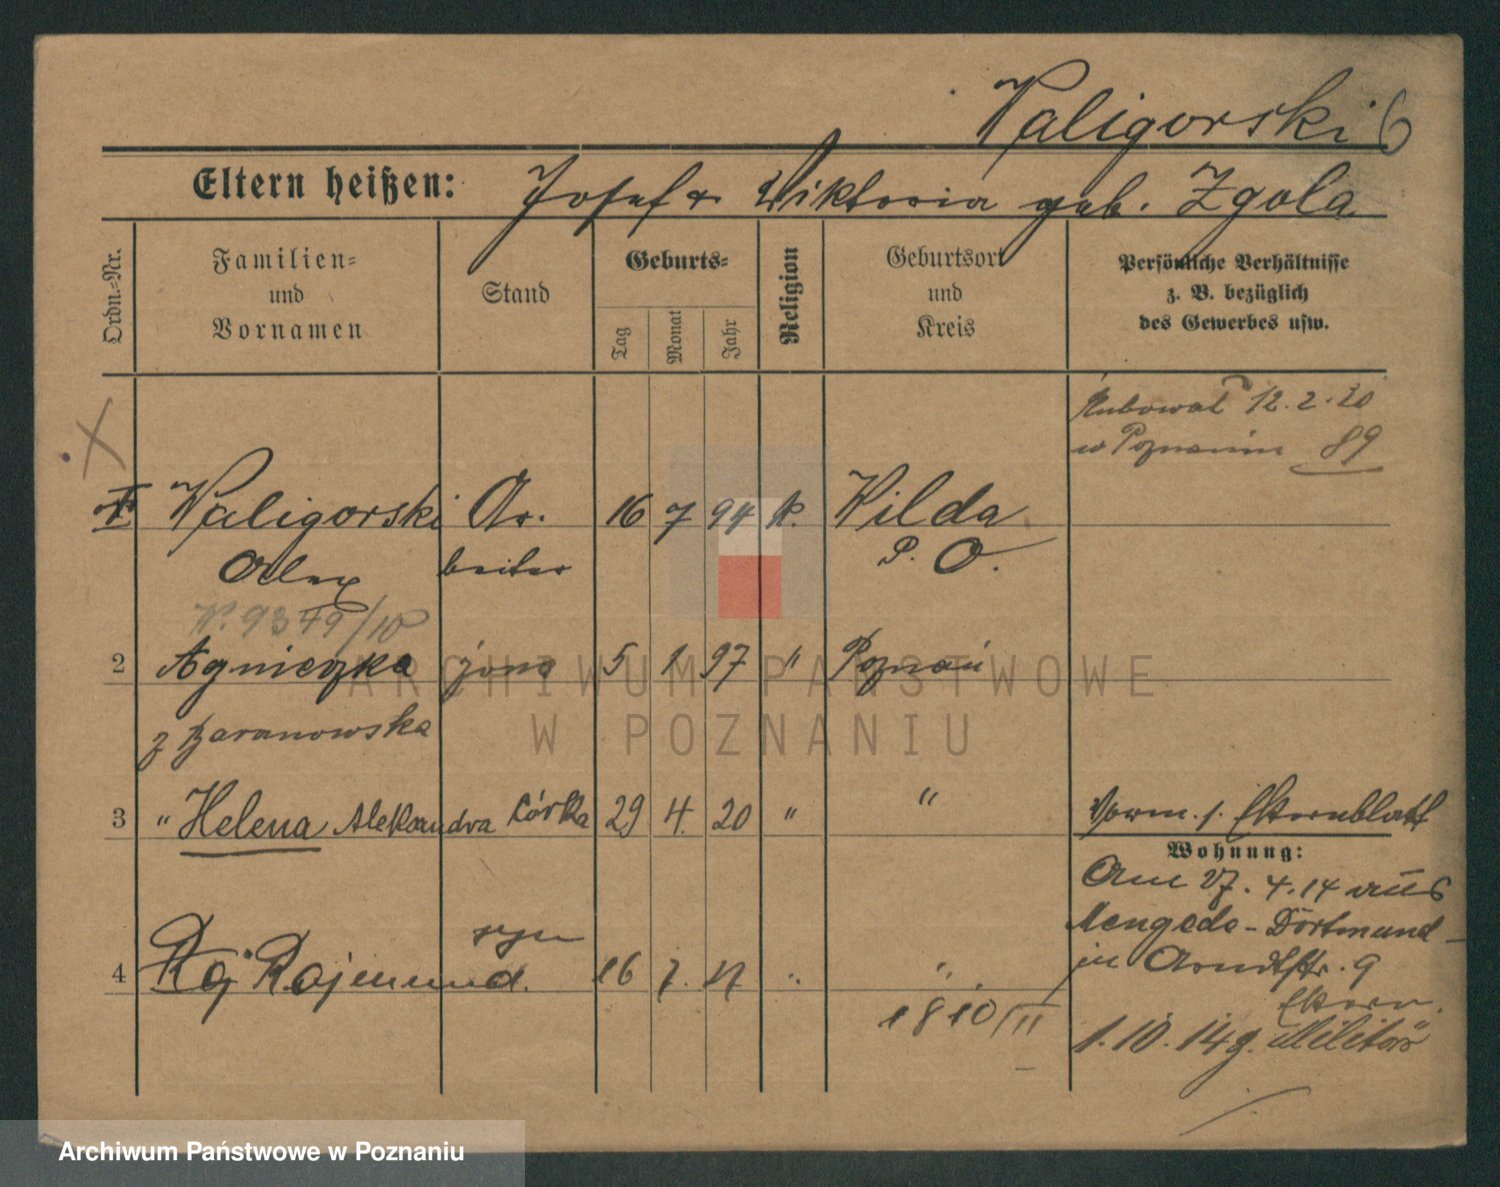 Waligorski 6
Eltern heißen: Josef & Wiktoria geb. Zgola
Ordn.-Nr.
Familien=
und
Vornamen
Stand
Geburts=
Tag
Monat
Jahr
Religion
Geburtsort
und
Kreis
Persönliche Verhältnisse
z. B. bezüglich
des Gewerbes usw.
12.2.20
w Poznaniu 89
Waligorski Ar. 16 7 94 k. Wilda
Alex beiter P. O.
9379/10
2 Agnieszka żona 5 1 97 " Poznań
z Baranowska
3 " Helena Aleksandra córka 29 4. 20 " "
Vorm. s. Elternblatt
Wohnung:
Am 27.4.14 aus
Mengede-Dortmund-
in Arndtstr. 9
Eltern.
1.10.14 g. Militär
syn
4 Rajmund. 16 7. " "
1810/II
ARCHIWUM PAŃSTWOWE
W POZNANIU
Archiwum Państwowe w Poznaniu